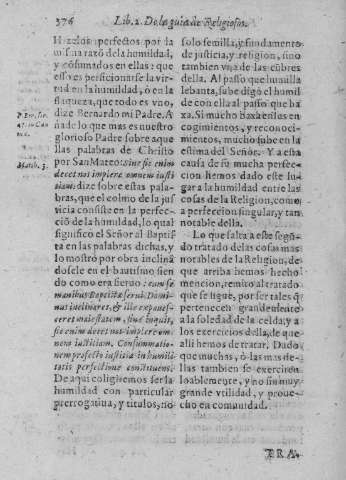 376 Lib. 2. De la guia de Religiosos.
Hazelos perfectos por la
misma razõ de la humildad,
y cõsumados en ellas: que
esso es perficionarse la vir-
tud en la humildad, ò en la
flaqueza, que todo es vno,
dize Bernardo mi Padre. A-
ñade lo que mas es nuestro
glorioso Padre sobre aque
llas palabras de Christo
por San Mateo: Sine sic enim
decet nos implere omnem iusti
tiam: dize sobre estas pala-
bras, que el colmo de la jus
ticia consiste en la perfec-
ciõ de la humildad, lo qual
significò el Señor al Baptis
ta en las palabras dichas, y
lo mostrò por obra inclinã
dosele en el bautismo sien
do como era sieruo: cum se
manibus Baptistæ serui Domi-
nus inclinaret, & ille expauesceret
maiestatem, sine inquit,
sic enim decet nos implere om-
nem iustitiam, Consummatio-
nem profecto iustitiæ in humili-
tatis perfectione constituens.
De aqui coligiremos ser la
humildad con particular
prerrogatiua, y titulos, no
P. Ber. ser.
Matth. 3.
solo semilla, y fundamento
de justicia, y religion, sino
tambien vna de las cũbres
della. Al passo que humilla
lebanta, sube digo el humil
de con ella al passo que ba
xa. Si mucho baxa en los en
cogimientos, y reconoci-
mientos, mucho sube en la
estima del Señor. Y a esta
causa de su mucha perfec-
cion hemos dado este lu-
gar a la humildad entre las
cosas de la Religion, como
a perfeccion singular, y tan
notable della.
Lo que falta a este segũ-
do tratado de las cosas mas
notables de la Religion, de
que arriba hemos hecho
mencion, remito al tratado
que se sigue, por ser tales q̃
pertenecen grandemente
a la soledad de la celda, y a
los exercicios della, de que
alli hemos de tratar. Dado
que muchas, ò las mas de-
llas tambien se exerciten
loablemente, y no sin muy
grande vtilidad, y proue-
cho en comunidad.
TRA-